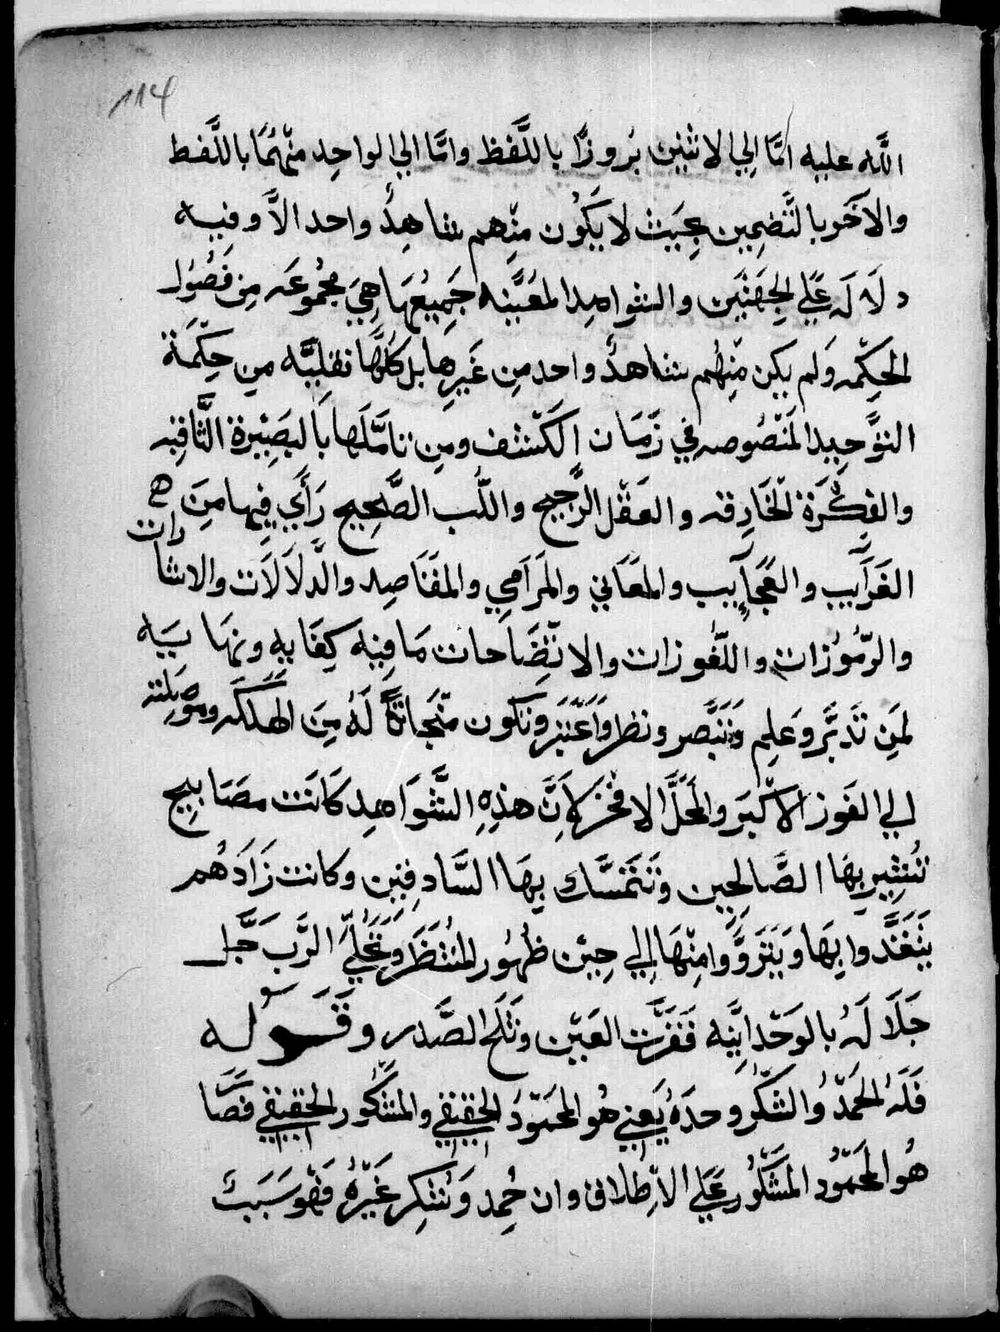 114
الله عليه امَّا الي الاثنين بُروزًا باللَّفظ وامَّا الي الواحِد منْهُمَا باللَّفظ
والآخر بالتَّضمِين بحِيَث لا يَكُون منِهم شاهِدٌ واحد الاَّ وفيه
دلاَلَه عَلَي الجِهَتَين والشواهِد المعَيَّنه جَمِيعُهَا هِيَ مجْمُوعَه مِن فصُول
الحِكْمه وَلم يكن مِنْهُم شاهدٌ واحد مِن غَيرِها بل كلهَا نقليَّه مِن حِكْمَة
التوَّحِيد المَنْصُوصه في زَمَان الكَشْف ومِن تامَّلَهَا بالبَصِيْرة الثَّاقِبه
والفِكْرَة الخَارِقه والعَقْل الرَّجيح واللُّب الصَّحِيح رَأَي فِيهَا مِنَ
الغَرَآيب والعَجَآيب والمعَاني والمَرَامي والمقَاصِد والدَّلاَلاَت والاشارات
والرّمُوْزات واللّغوزات والاتّضَاحات مَا فِيْه كِفَايه ونهَايَه
لمَِن تَدبَّر وعَلِم وَتَبَصَّر ونظر وَاَعْتَبَر وتكون منْجَاتًا لَهُ مِنَ الهَلَكَه ومُوْصِلَت
الي الفَوز الاكْبَر والمحَلَّ الافْخَر لانّ هذِهِ الشَّوَاهِد كَانَت مصَابيح
تَسْتَنِير بهَا الصَّالِحِين وتَتَمَسَّك بِهَا السَّادِقِين وكانت زَادَهُم
يتَغَذَّوا بِهَا وَيَتَروَّوا مِنْهَا الي حِيْن ظهُور المُنْتَظَر وَتَجَليّ الرَّبّ جَلَّ
جَلاَلَهُ بالوَحْدَانِيَّه فَقرَّت العَيْن وثَلَجَ الصَّدر وقَوله
فَلَهُ الحَمْدُ والشكْر وحدَهُ يَعني هُو المحْمُودُ الحقيقي والمشْكُور الحقيقي فصَّا
هُو المحْمُود المشْكُور عَلَي الاطْلاق وان حُمِد وَشُكِر غَيْرُهُ فَهُو سَبَبٌ